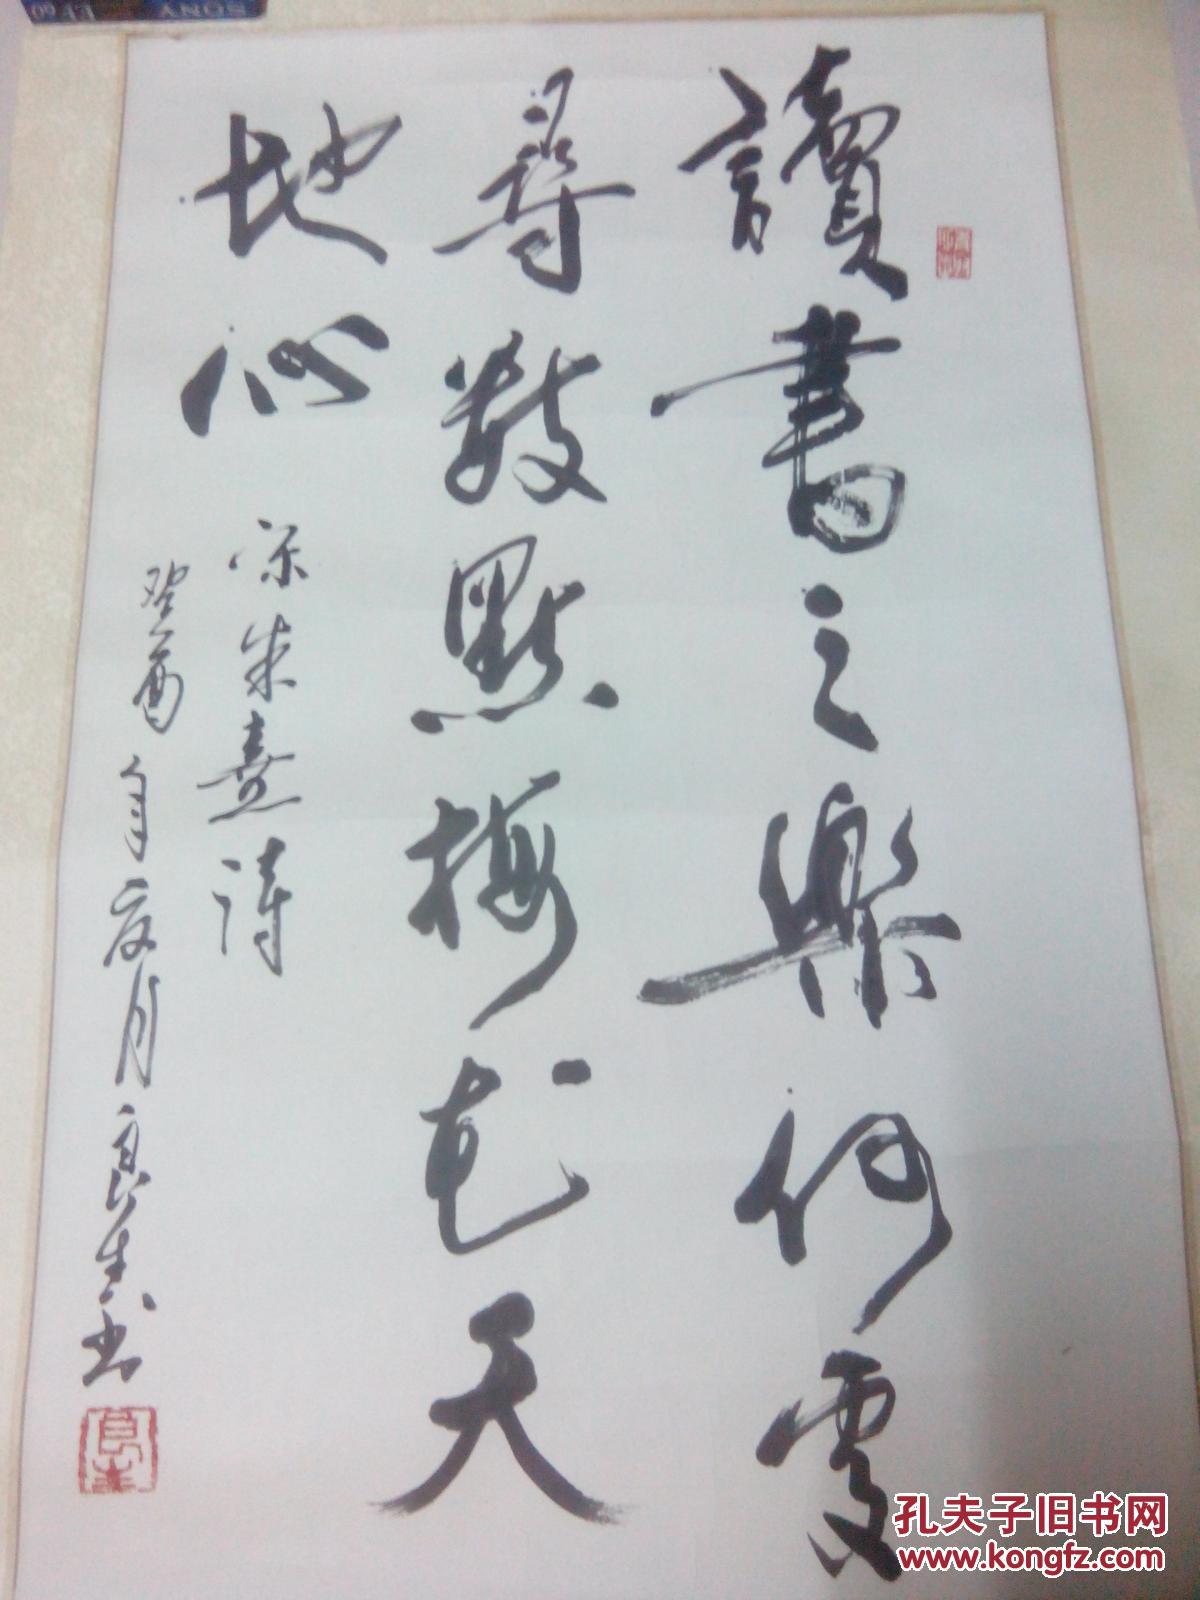 讀書之樂何處
尋數點梅花天
地心
宋朱熹詩
癸酉年夏月良生書
良生
孔夫子旧书网
www.kongfz.com
SONY